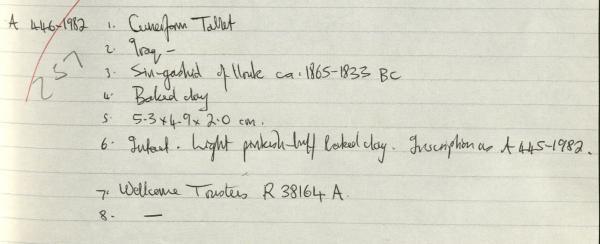 A 446-1982 1. Cuneiform Tablet
257
2. Iraq -
3. Sin-gashid of Uruk ca. 1865-1833 BC
4. Baked clay
5. 5.3 x 4.9 x 2.0 cm.
6. Intact. Light pinkish-buff baked clay. Inscription as A 445-1982.
7. Wellcome Trustees R 38164 A.
8. —